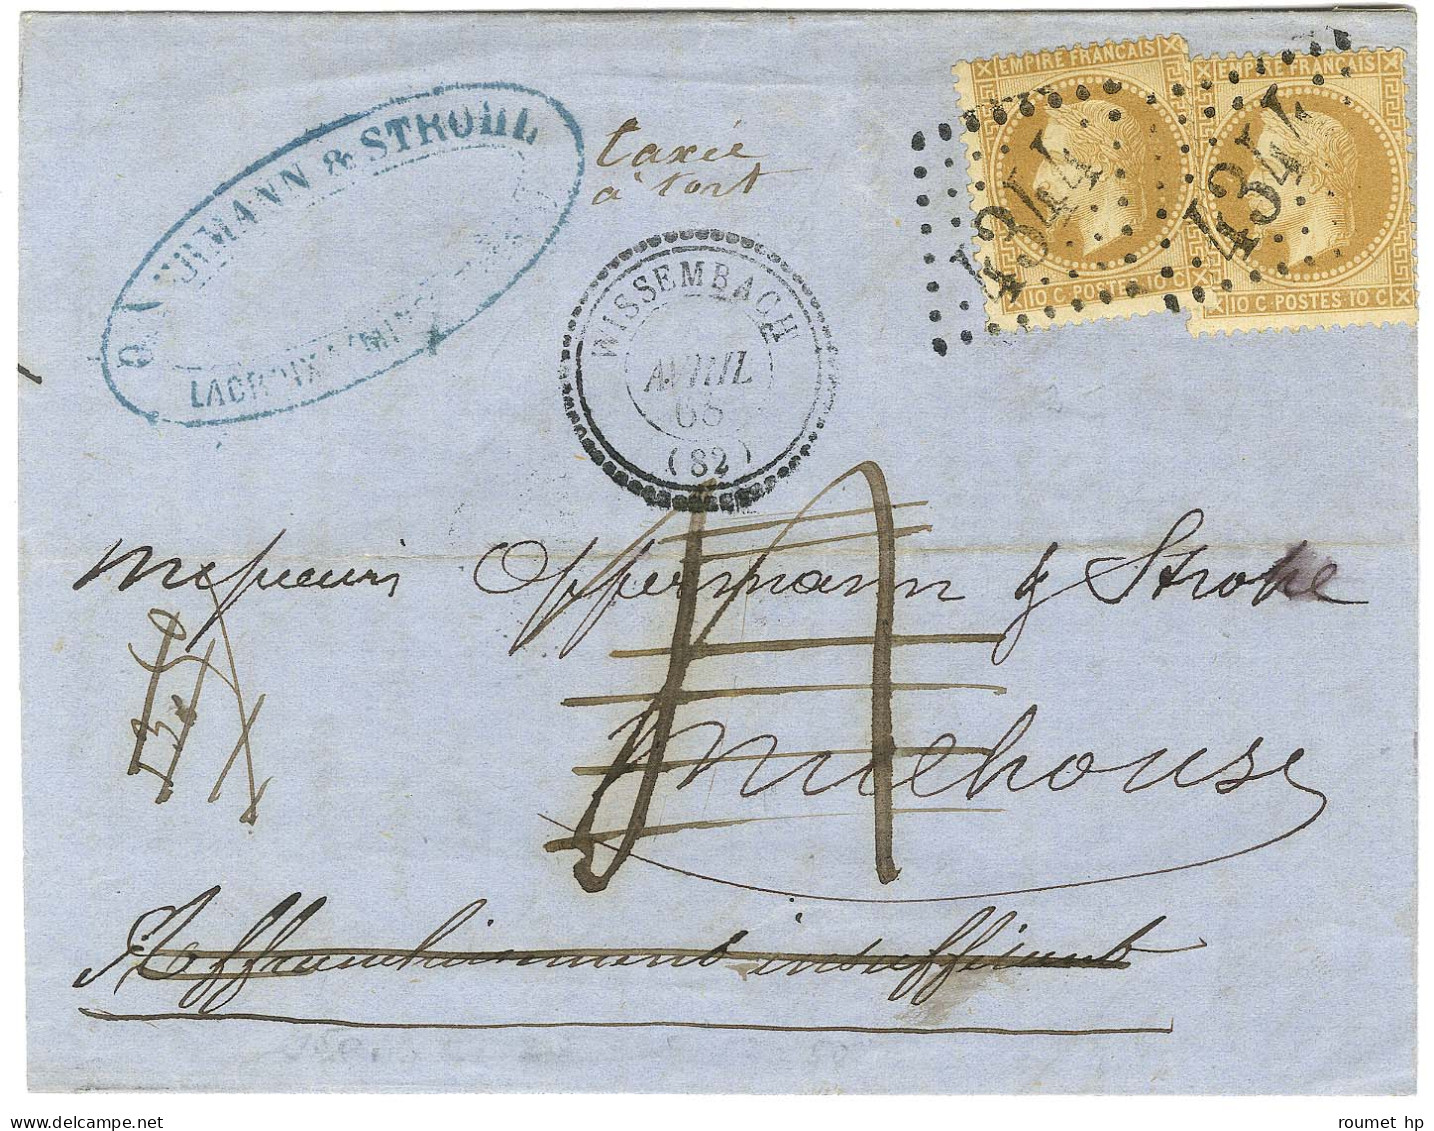 & STROHL
LACROIX
taxée
à tort
EMPIRE FRANÇAIS
10 C POSTES 10 C
4344
EMPIRE FRANÇAIS
10 C POSTES 10 C
4344
WISSEMBACH
AVRIL
68
(82)
Messieurs Offermann & Strohl
Mulhouse
Affranchissement insuffisant
roumet hp